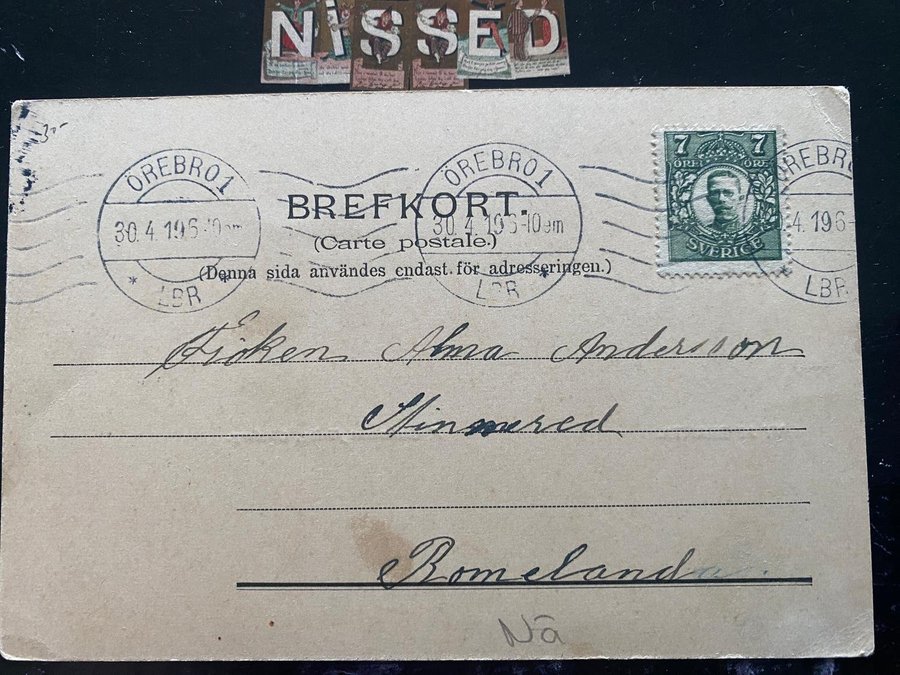 NISSED
30-
ÖREBRO 1
30.4.19 6-10em
* LBR
ÖREBRO 1
30.4.19 6-10em
LBR *
7 7
ÖRE ÖRE
SVERIGE
ÖREBRO
4.19 6-
LBR
BREFKORT.
(Carte postale.)
(Denna sida användes endast för adresseringen.)
Fröken Alma Andersson
Romeland
Nä